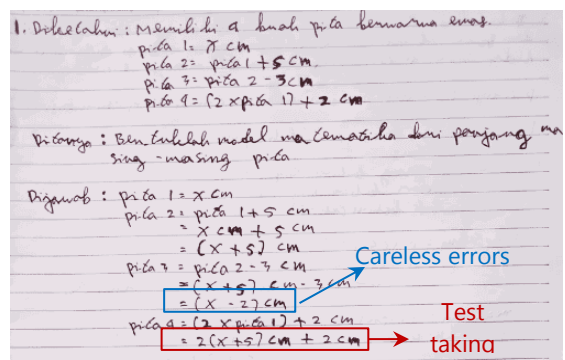 1. Diketahui : Memiliki 4 buah pita berwarna emas.
pita 1 = x cm
pita 2 = pita 1 + 5 cm
pita 3 = pita 2 - 3 cm
pita 4 = (2 x pita 1) + 2 cm
Ditanya : Bentuklah model matematika dari panjang ma
sing-masing pita
Dijawab : pita 1 = x cm
pita 2 = pita 1 + 5 cm
= x cm + 5 cm
= (x + 5) cm
pita 3 = pita 2 - 3 cm
Careless errors
= (x + 5) cm - 3 cm
= (x - 2) cm
pita 4 = (2 x pita 1) + 2 cm
= 2(x + 5) cm + 2 cm
Test
taking